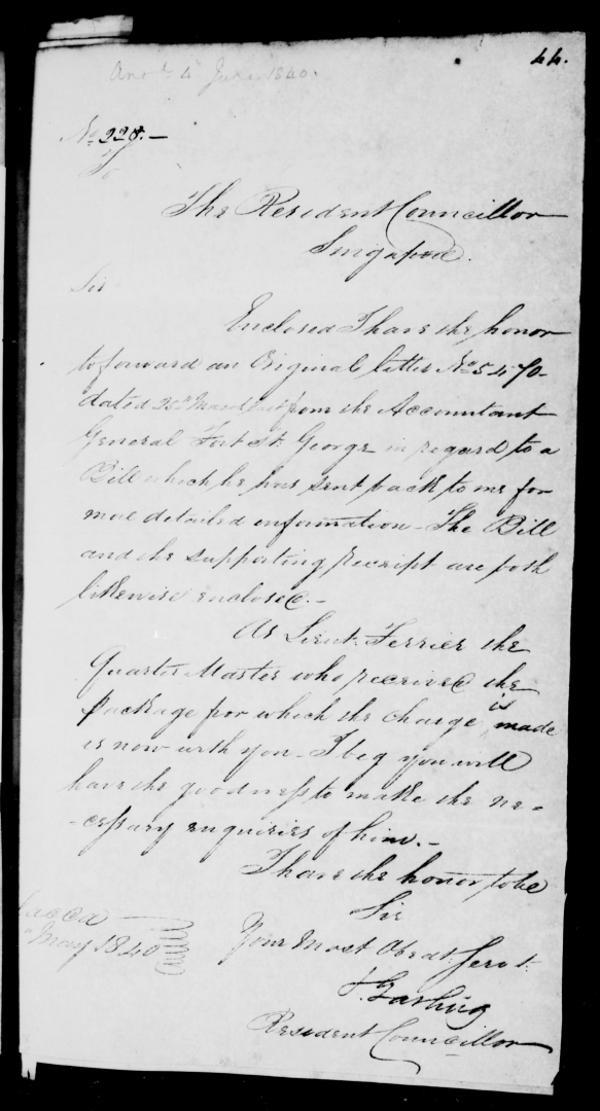 44.
Ansd. 4 June 1840.
No. 228.-
To
The Resident Councillor
Singapore.
Sir
Enclosed I have the honor
to forward an Original letter No. 5470-
dated 25th March last from the Accountant
General Fort St. George in regard to a
Bill which he has sent back to me for
more detailed information - The Bill
and the supporting receipt are both
likewise enclosed.-
As Lieut. Ferrier the
Quarter Master who received the
package for which the charge is made
is now with you - I beg you will
have the goodness to make the ne-
-cessary enquiries of him.-
I have the honor to be
Sir
Your Most Obedt. Servt.
Resident Councillor
lacca
May 1840